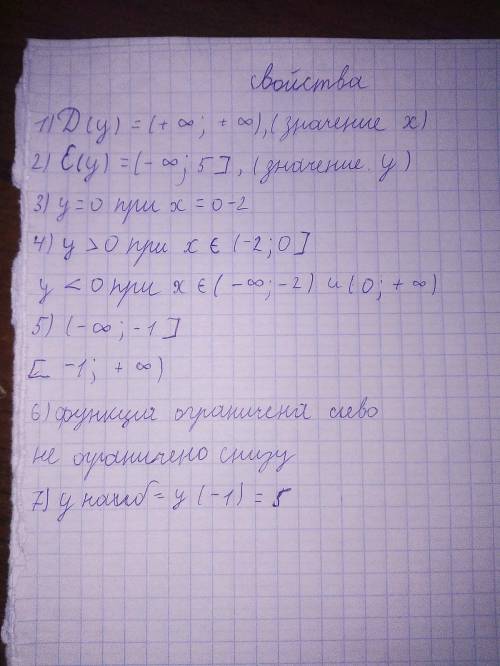 свойства
1) D(y) = (+ ∞; + ∞), (значение x)
2) E(y) = (- ∞; 5], (значение y)
3) y=0 при x = 0-2
4) y > 0 при x ∈ (-2; 0]
y < 0 при x ∈ (- ∞; -2) и (0; + ∞)
5) (-∞; -1]
[ -1; + ∞)
6) функция ограничена
не ограничено снизу
7) y наиб = y (-1) = 5